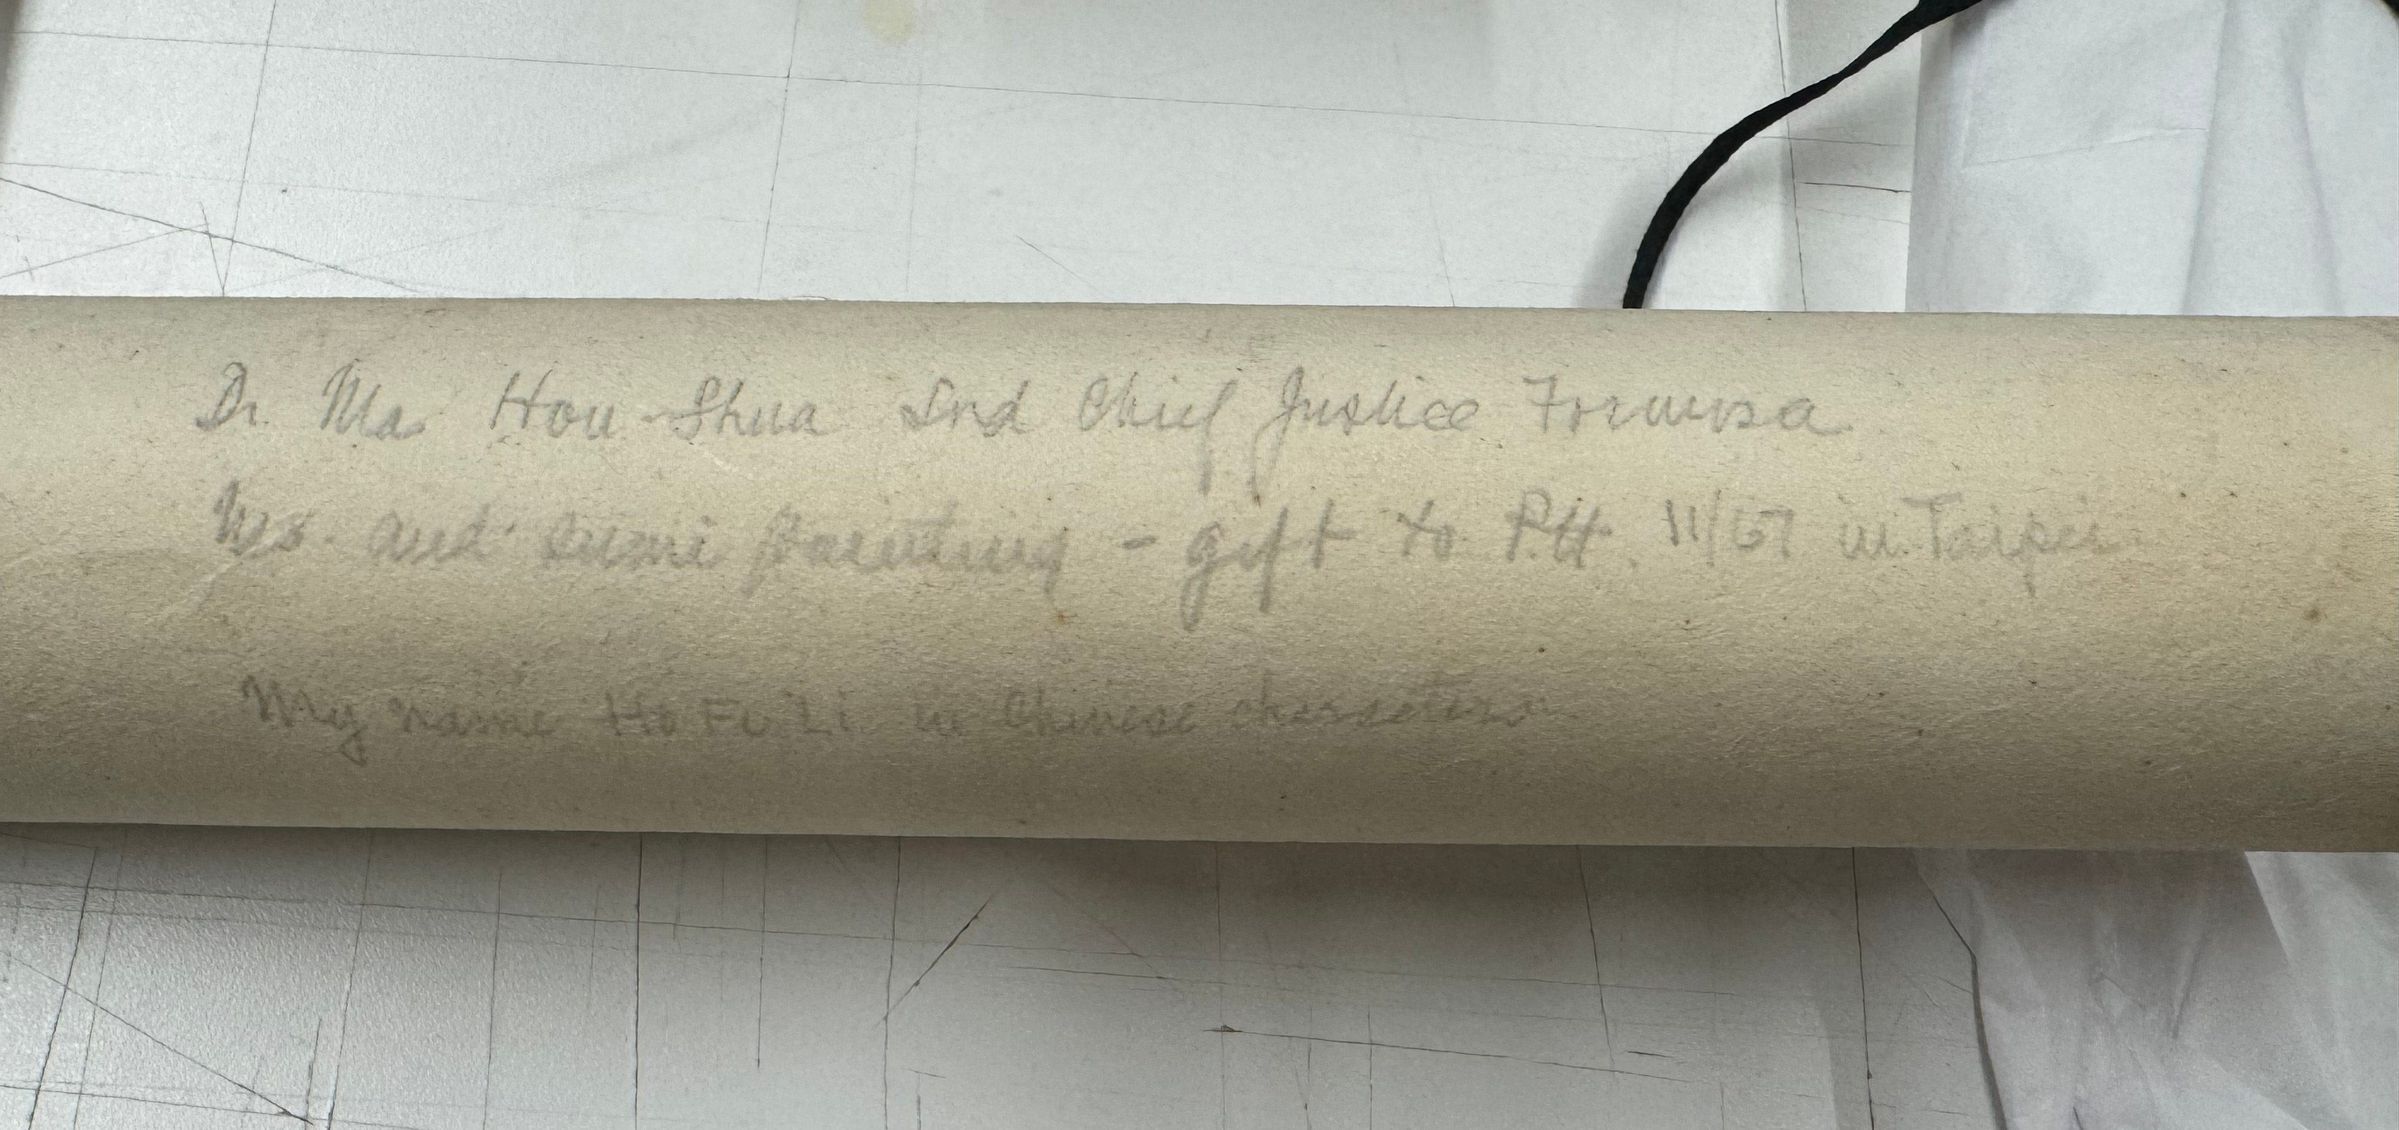 Dr. Ma Hou-Shua 2nd Chief Justice Formosa
Ms. and sumi painting - gift to P.H. 11/67 in Taipei
My name Ho Fu Li in Chinese characters